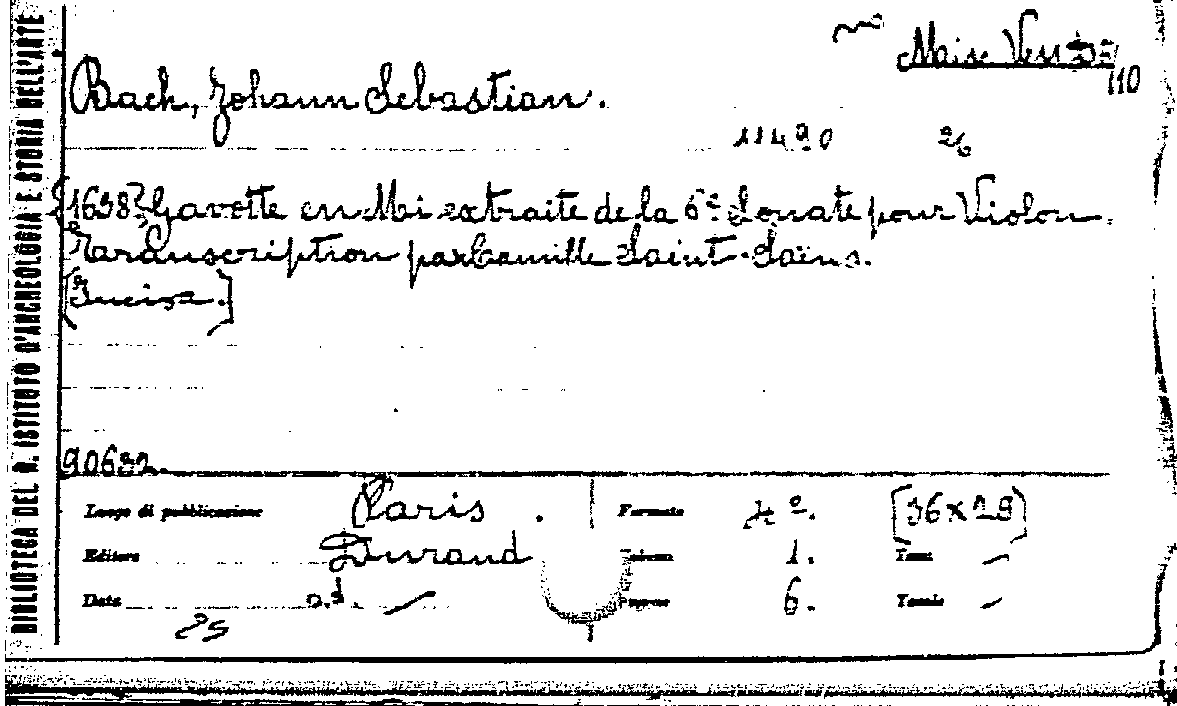 BIBLIOTECA DEL R. ISTITUTO D'ARCHEOLOGIA E STORIA DELL'ARTE
110
Bach, Johann Sebastian.
11490 26
[1638] Gavotte en Mi extraite de la 6e Sonate pour Violon.
Transcription par Camille Saint-Saëns.
[Incisa.]
90632
Luogo di pubblicazione Paris. Formato 4º. [36x28]
Editore Durand Volume 1. Tomi —
Data n.d. — Pagine 6. Tavole —